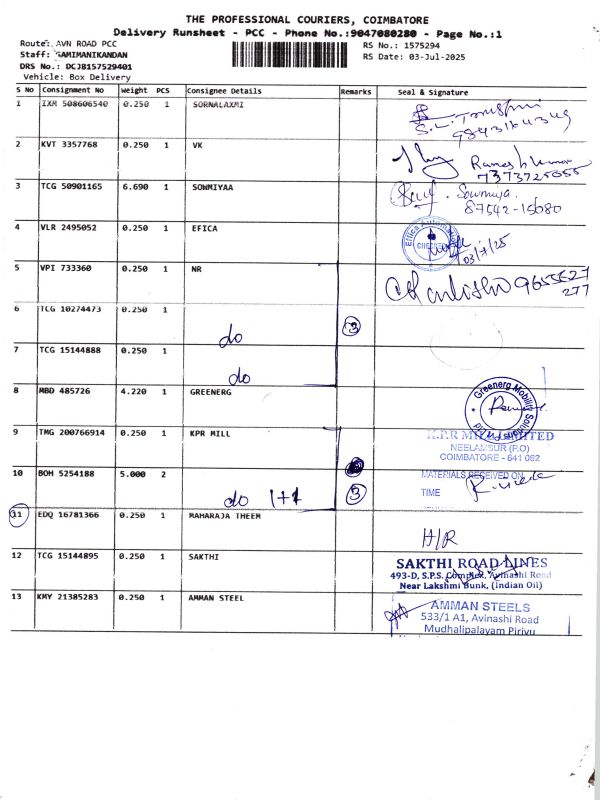 THE PROFESSIONAL COURIERS, COIMBATORE
Delivery Runsheet - PCC - Phone No.:9047080280 - Page No.:1
Route: AVN ROAD PCC
RS No.: 1575294
Staff: SAMIMANIKANDAN
RS Date: 03-Jul-2025
DRS No.: DCJB157529401
Vehicle: Box Delivery
S No Consignment No Weight PCS Consignee Details Remarks Seal & Signature
1 IXM 508606540 0.250 1 SORNALAXMI
2 KVT 3357768 0.250 1 VK Ramesh kumar
7373725055
3 TCG 50901165 6.690 1 SOWMIYAA Sowmiya
87542-15080
4 VLR 2495052 0.250 1 EFICA Efica Automation CHECKED
03/7/25
5 VPI 733360 0.250 1 NR 9655527
277
6 TCG 10274473 0.250 1 do 3
7 TCG 15144888 0.250 1 do
8 MBD 485726 4.220 1 GREENERG Greenerg Mobility Solutions Pvt Ltd
9 TMG 200766914 0.250 1 KPR MILL K.P.R MILL LIMITED
NEELAMBUR (P.O)
COIMBATORE - 641 062
10 BOH 5254188 5.000 2 do 1+1 3 MATERIALS RECEIVED ON
TIME
11 EDQ 16781366 0.250 1 MAHARAJA THEEM H/R
12 TCG 15144895 0.250 1 SAKTHI SAKTHI ROAD LINES
493-D, S.P.S. Complex, Avinashi Road
Near Lakshmi Bunk, (Indian Oil)
13 KMY 21385283 0.250 1 AMMAN STEEL AMMAN STEELS
533/1 A1, Avinashi Road
Mudhalipalayam Pirivu